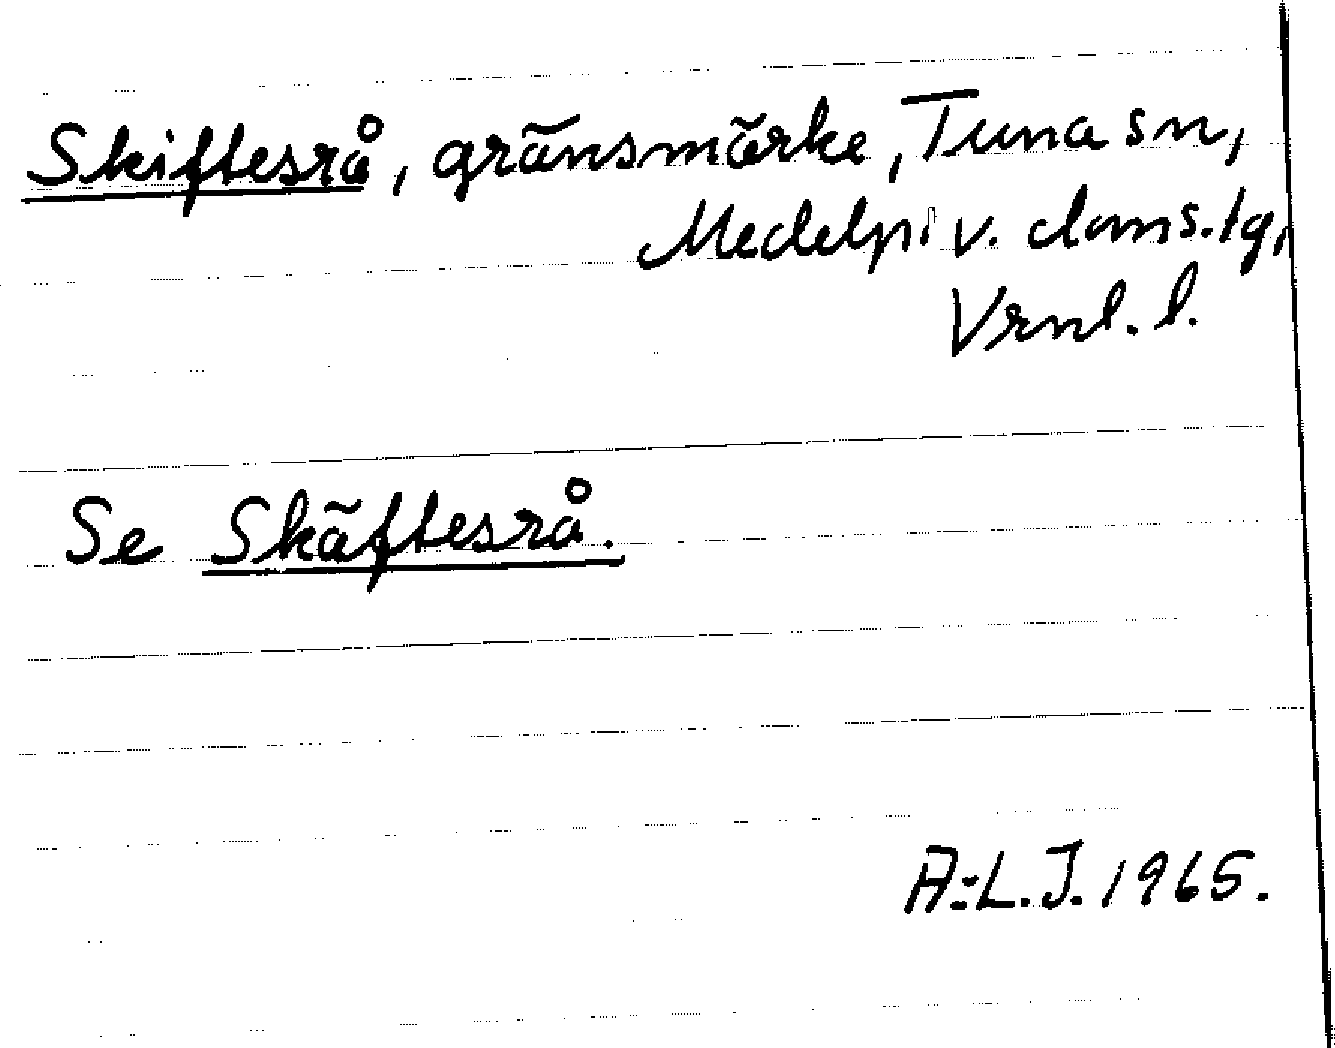 Skiftesrå, gränsmärke, Tuna sn,
Medelpi v. doms.lg,
Vrnl. l.
Se Skäftesrå.
A:L.J. 1965.